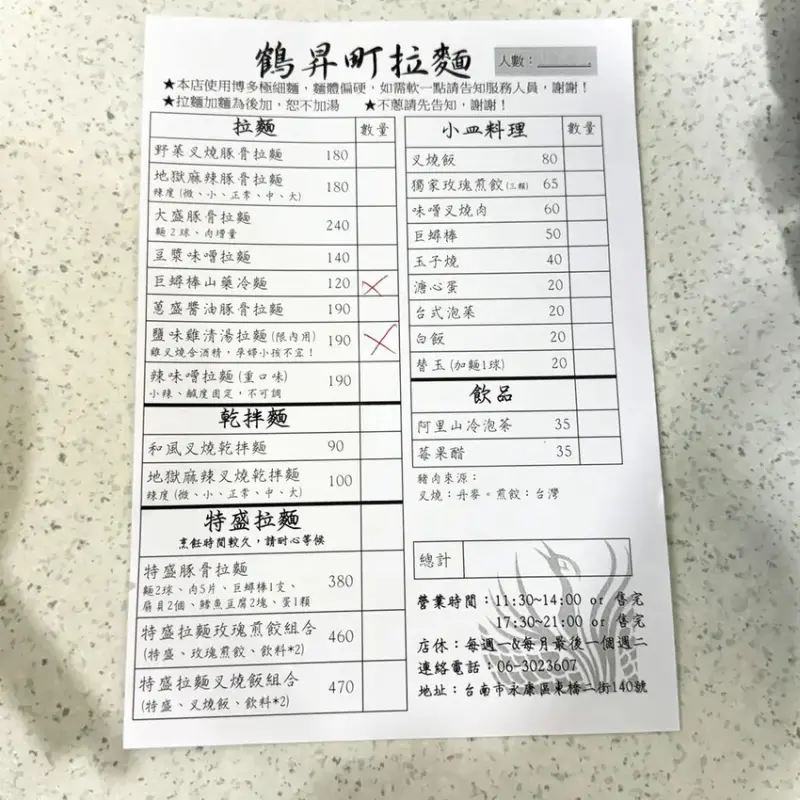 鶴昇町拉麵
人數：
★本店使用博多極細麵，麵體偏硬，如需軟一點請告知服務人員，謝謝！
★拉麵加麵為後加，恕不加湯　★不蔥請先告知，謝謝！
拉麵 數量
野菜叉燒豚骨拉麵 180
地獄麻辣豚骨拉麵 180
辣度(微、小、正常、中、大)
大盛豚骨拉麵 240
麵2球、肉增量
豆漿味噌拉麵 140
巨蟳棒山藥冷麵 120
蔥盛醬油豚骨拉麵 190
鹽味雞清湯拉麵(限內用) 190
雞叉燒含酒精，孕婦小孩不宜！
辣味噌拉麵(重口味) 190
小辣、鹹度固定，不可調
乾拌麵
和風叉燒乾拌麵 90
地獄麻辣叉燒乾拌麵 100
辣度(微、小、正常、中、大)
特盛拉麵
烹飪時間較久，請耐心等候
特盛豚骨拉麵 380
麵2球、肉5片、巨蟳棒1支、
扇貝2個、鱈魚豆腐2塊、蛋1顆
特盛拉麵玫瑰煎餃組合 460
(特盛、玫瑰煎餃、飲料*2)
特盛拉麵叉燒飯組合 470
(特盛、叉燒飯、飲料*2)
小皿料理 數量
叉燒飯 80
獨家玫瑰煎餃(三顆) 65
味噌叉燒肉 60
巨蟳棒 50
玉子燒 40
溏心蛋 20
台式泡菜 20
白飯 20
替玉(加麵1球) 20
飲品
阿里山冷泡茶 35
莓果醋 35
豬肉來源：
叉燒：丹麥。煎餃：台灣
總計
營業時間：11:30~14:00 or 售完
17:30~21:00 or 售完
店休：每週一&每月最後一個週二
連絡電話：06-3023607
地址：台南市永康區東橋二街140號